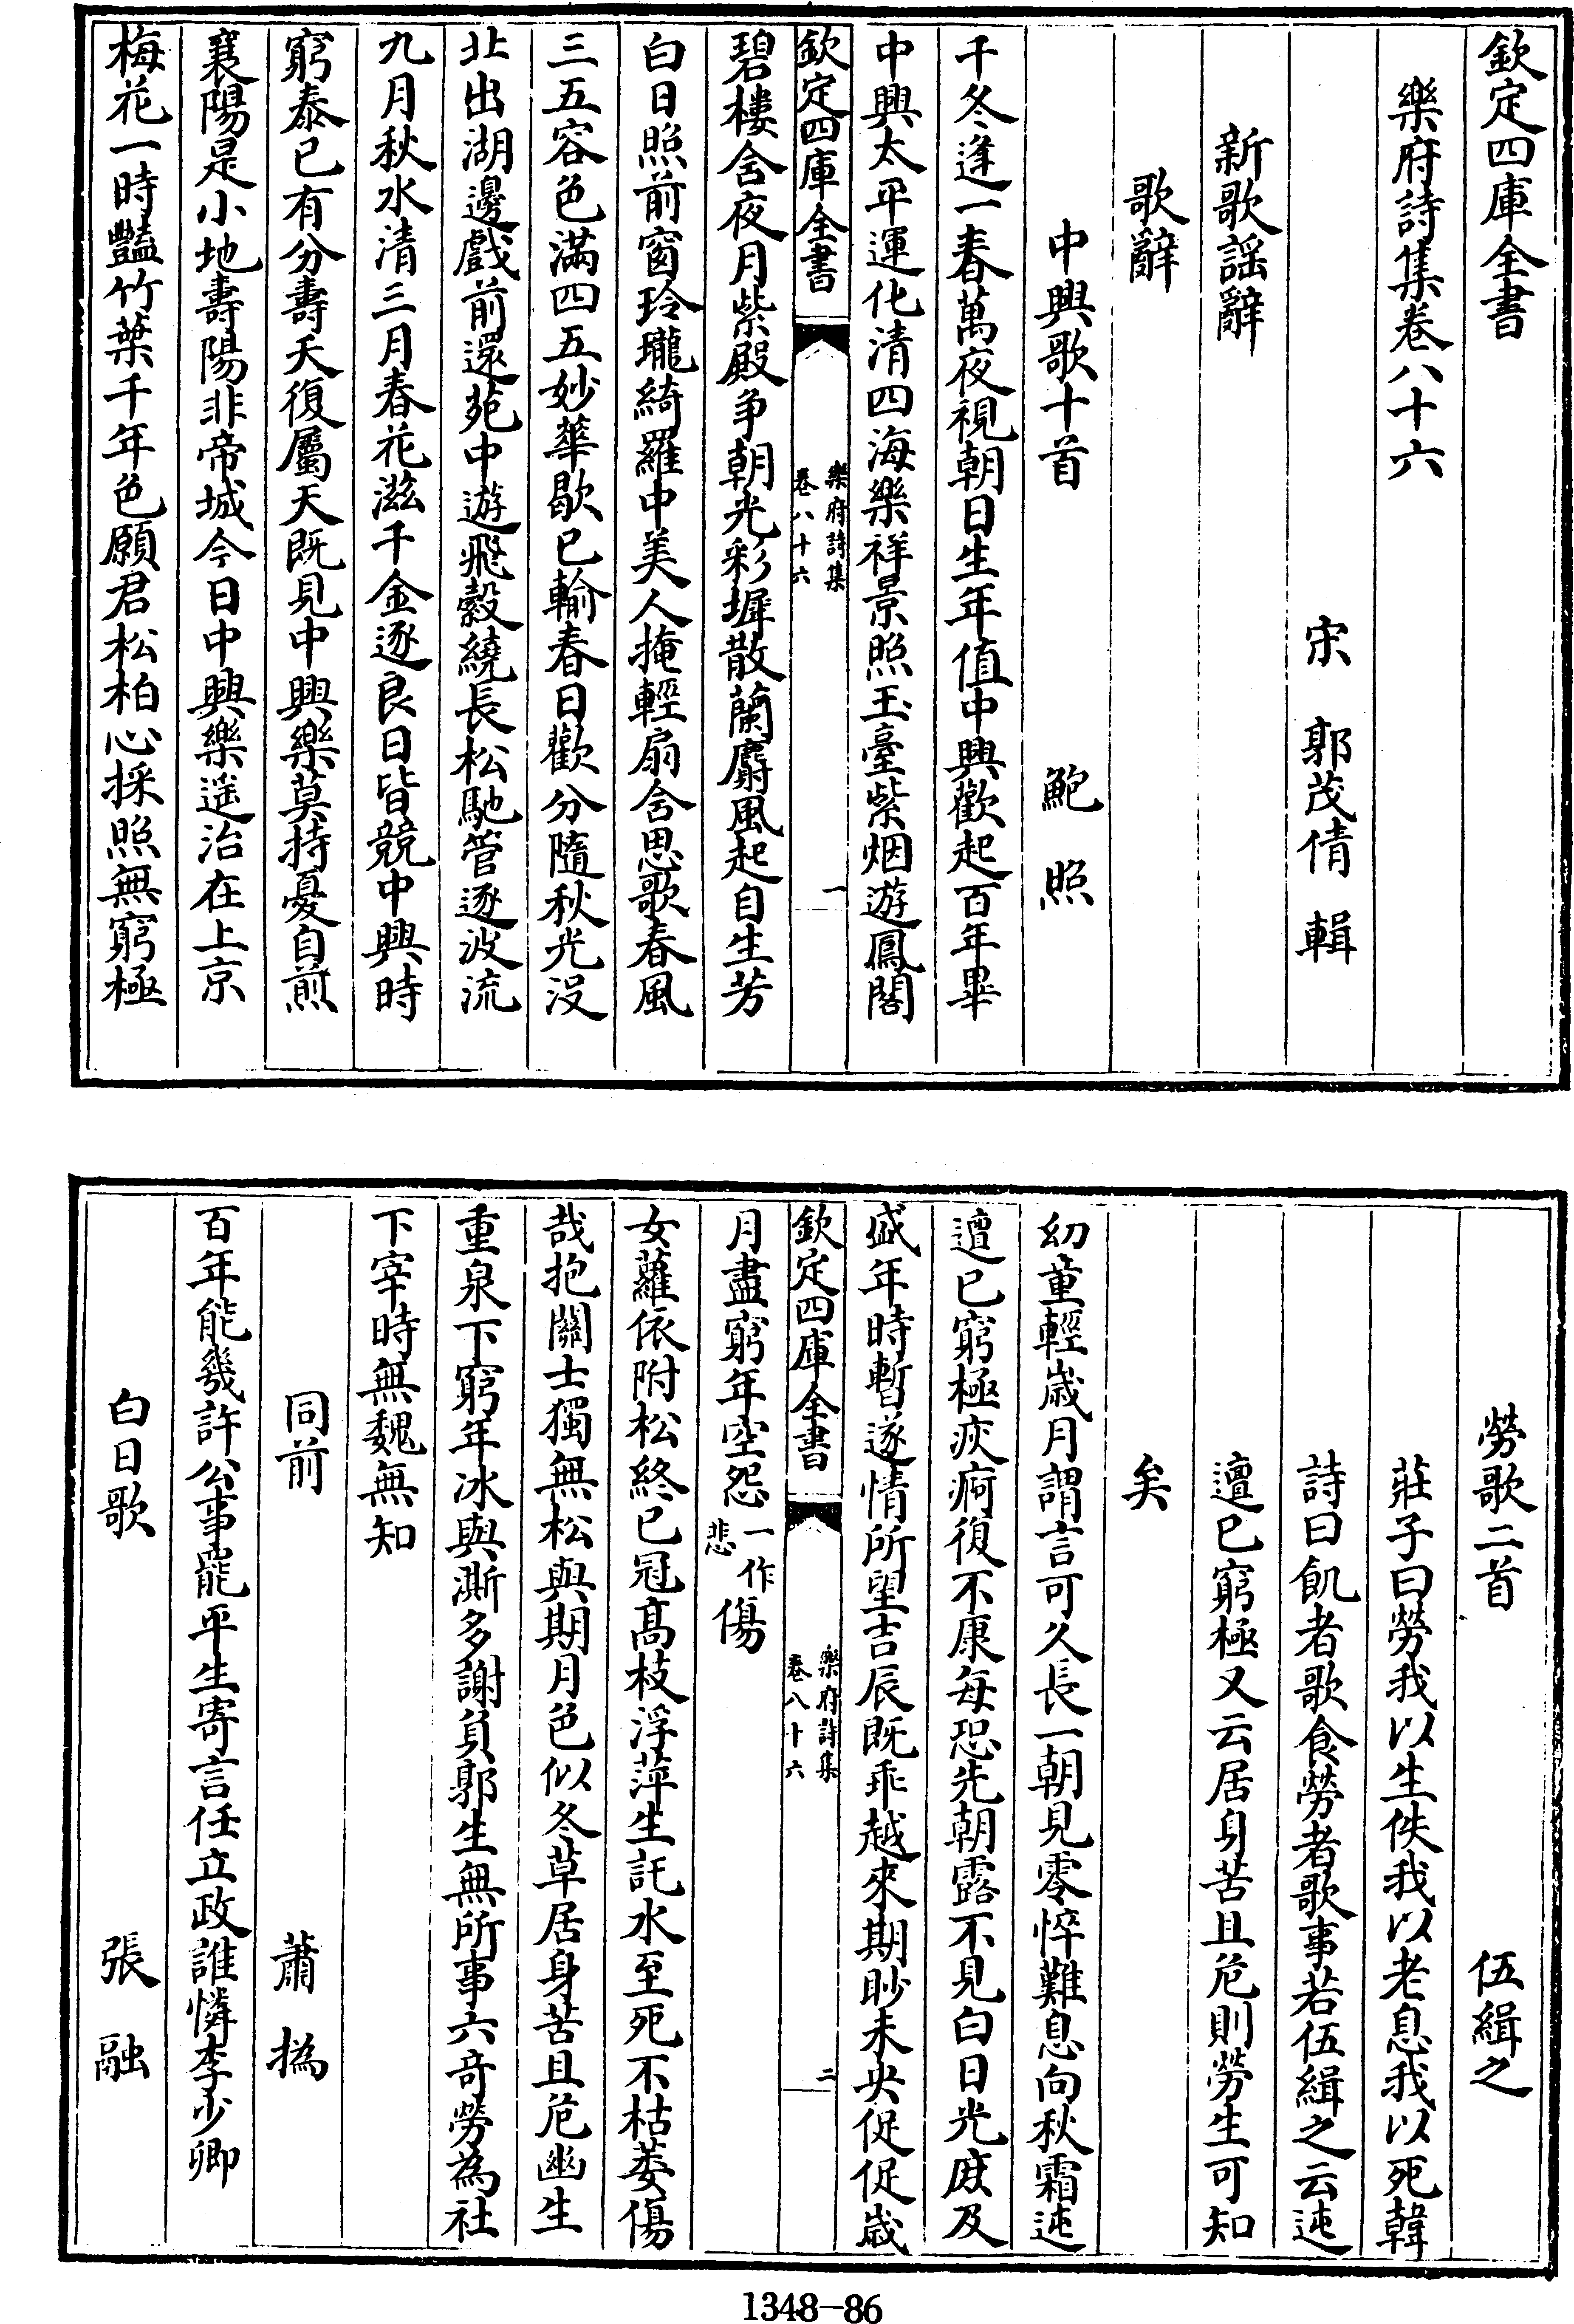 欽定四庫全書
樂府詩集卷八十六
宋　郭茂倩　輯
新歌謡辭
歌辭
中興歌十首　鮑　照
千冬逢一春萬夜視朝日生年值中興歡起百年畢
中興太平運化清四海樂祥景照玉臺紫烟遊鳳閣
欽定四庫全書
樂府詩集
卷八十六
一
碧樓含夜月紫殿争朝光彩墀散蘭麝風起自生芳
白日照前窗玲瓏綺羅中美人掩輕扇含思歌春風
三五容色滿四五妙華歇已輸春日歡分隨秋光没
北出湖邊戲前還苑中遊飛縠繞長松馳管逐波流
九月秋水清三月春花滋千金逐良日皆競中興時
窮泰已有分壽夭復屬天既見中興樂莫持憂自煎
襄陽是小地壽陽非帝城今日中興樂遥治在上京
梅花一時豔竹葉千年色願君松柏心採照無窮極
勞歌二首　伍緝之
莊子曰勞我以生佚我以老息我以死韓
詩曰飢者歌食勞者歌事若伍緝之云迍
邅已窮極又云居身苦且危則勞生可知
矣
幼童輕歲月謂言可久長一朝見零悴難息向秋霜迍
邅已窮極疢痾復不康每恐先朝露不見白日光庶及
盛年時暫遂情所望吉辰既乖越來期眇未央促促歲
欽定四庫全書
樂府詩集
卷八十六
二
月盡窮年空怨一作悲傷
女蘿依附松終已冠高枝浮萍生託水至死不枯萎傷
哉抱關士獨無松與期月色似冬草居身苦且危幽生
重泉下窮年冰與澌多謝負郭生無所事六奇勞為社
下宰時無魏無知
同前　蕭　撝
百年能幾許公事罷平生寄言任立政誰憐李少卿
白日歌　張　融
1348-86